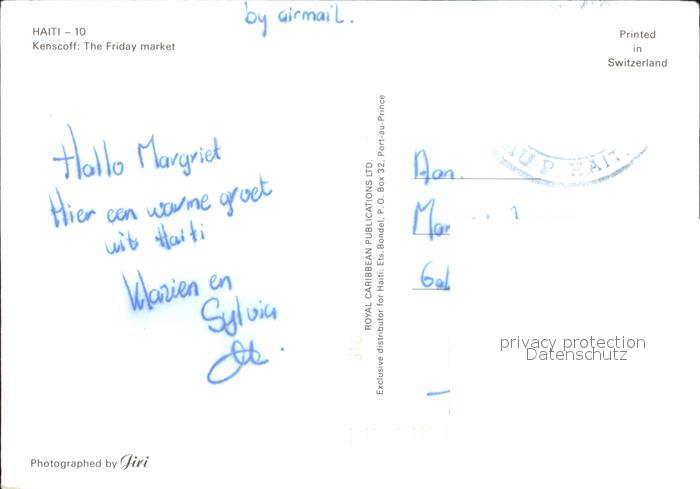 by airmail.
HAITI – 10
Kenscoff: The Friday market
Printed
in
Switzerland
Hallo Margriet
Hier een warme groet
uit Haiti
Marien en
Sylvia
ROYAL CARIBBEAN PUBLICATIONS LTD.
Exclusive distributor for Haiti: Ets. Bondel, P.O. Box 32, Port-au-Prince
AU P HAIT
Aan.
privacy protection
Datenschutz
Photographed by Jiri